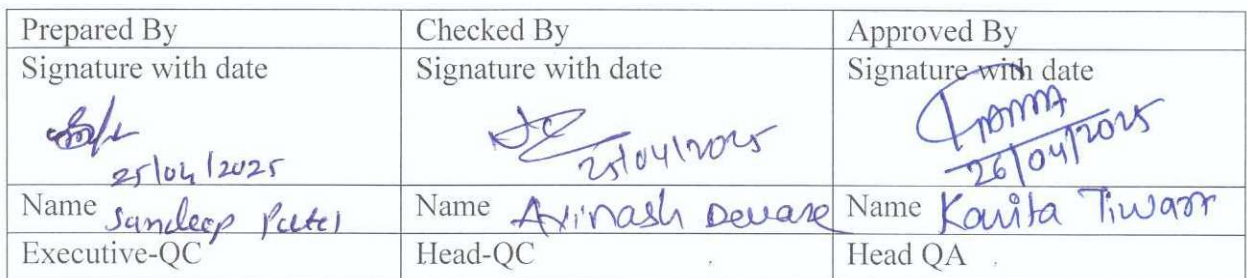 Prepared By
Checked By
Approved By
Signature with date
Signature with date
Signature with date
25/04/2025
25/04/2025
26/04/2025
Name Sandeep Patel
Name Avinash Deware
Name Kavita Tiwari
Executive-QC
Head-QC
Head QA